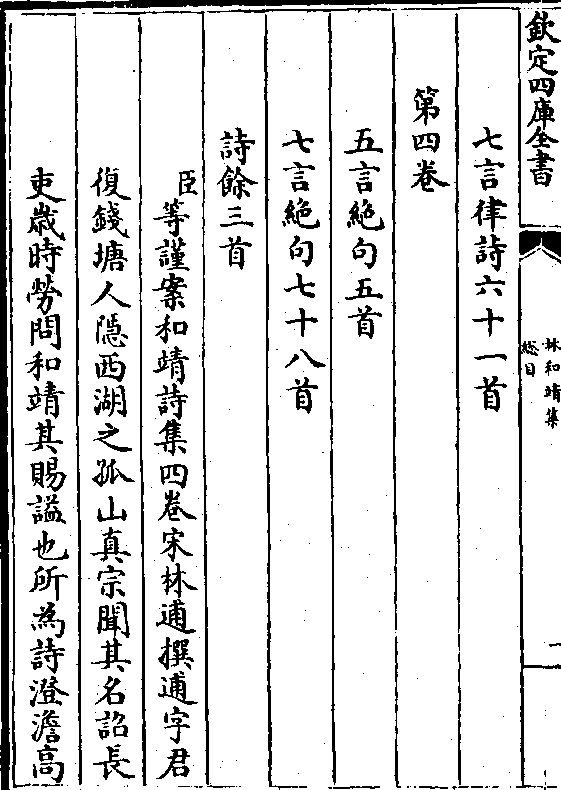 欽定四庫全書
林和靖集
總目
一
七言律詩六十一首
第四卷
五言絶句五首
七言絶句七十八首
詩餘三首
臣等謹案和靖詩集四卷宋林逋撰逋字君
復錢塘人隱西湖之孤山真宗聞其名詔長
吏歲時勞問和靖其賜諡也所為詩澄澹高